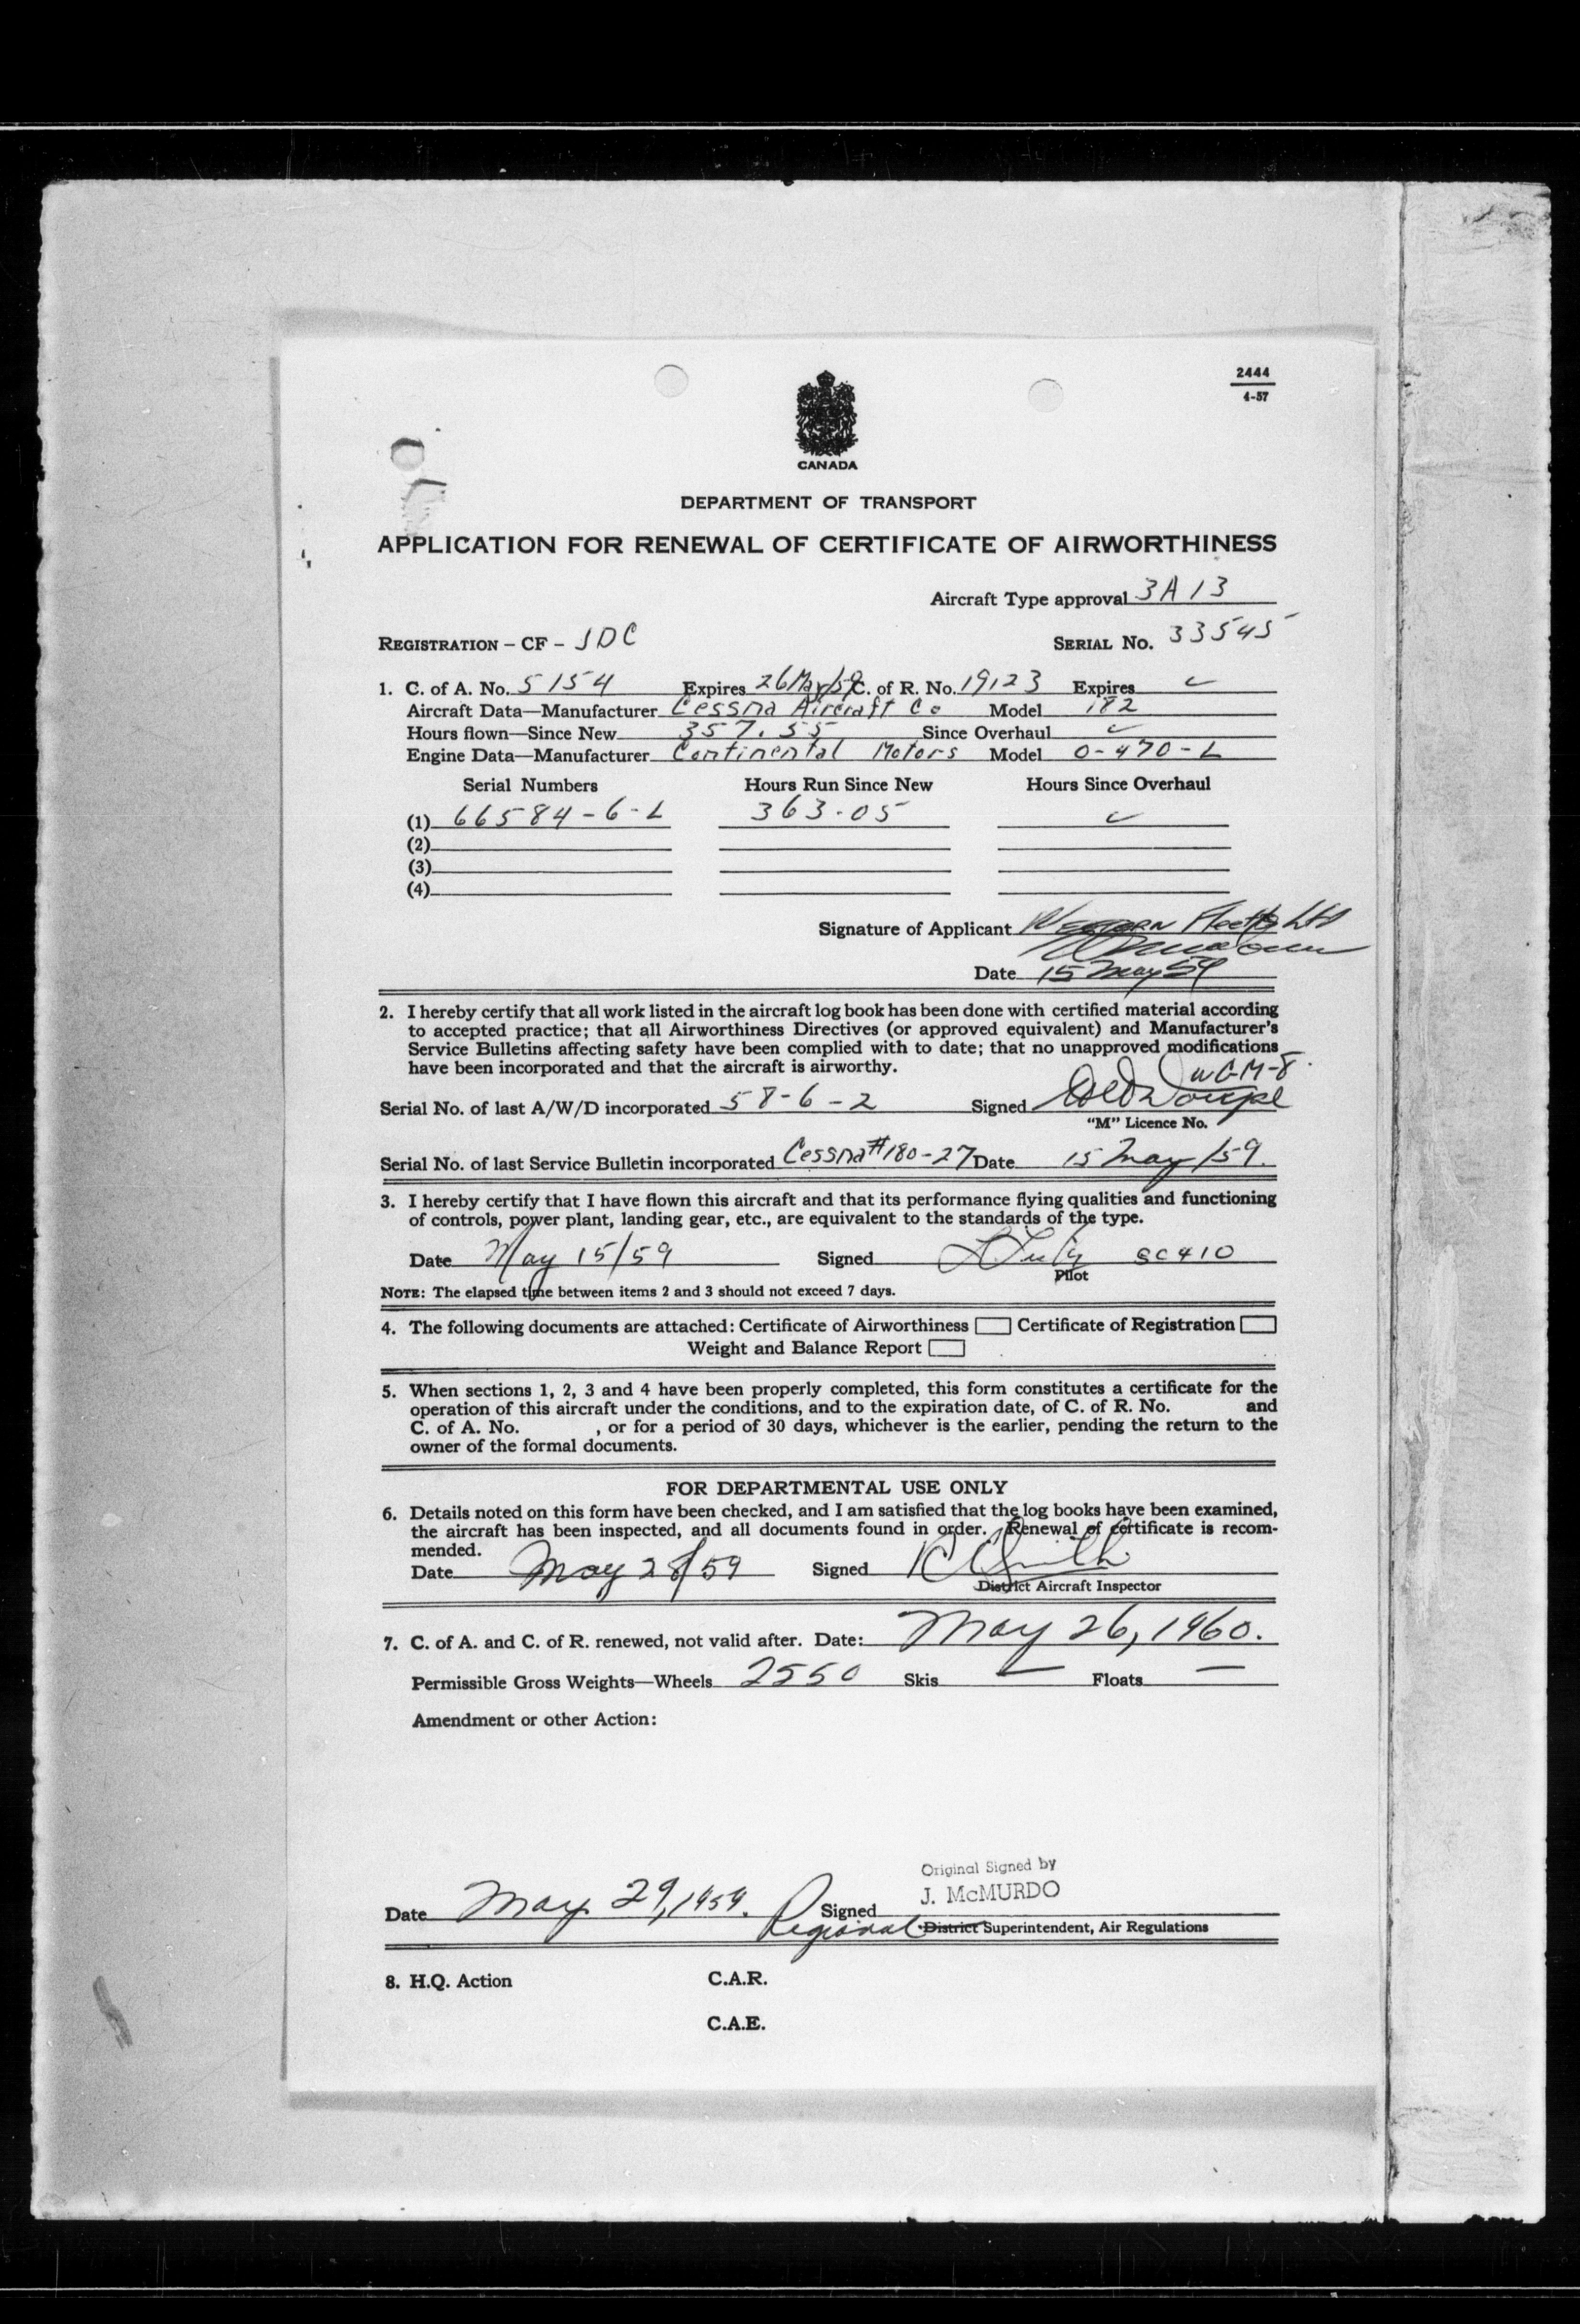 2444
4-57
CANADA
DEPARTMENT OF TRANSPORT
APPLICATION FOR RENEWAL OF CERTIFICATE OF AIRWORTHINESS
Aircraft Type approval 3A13
REGISTRATION – CF – JDC SERIAL No. 33545
1. C. of A. No. 5154 Expires 26 May/59 C. of R. No. 19123 Expires
Aircraft Data—Manufacturer Cessna Aircraft Co Model 182
Hours flown—Since New 357.55 Since Overhaul
Engine Data—Manufacturer Continental Motors Model O-470-L
Serial Numbers Hours Run Since New Hours Since Overhaul
(1) 66584-6-L 363.05
(2)
(3)
(4)
Signature of Applicant Western Fleets Ltd
Date 15 May 59
2. I hereby certify that all work listed in the aircraft log book has been done with certified material according
to accepted practice; that all Airworthiness Directives (or approved equivalent) and Manufacturer's
Service Bulletins affecting safety have been complied with to date; that no unapproved modifications
have been incorporated and that the aircraft is airworthy.
WGM-8
Serial No. of last A/W/D incorporated 58-6-2 Signed
"M" Licence No.
Serial No. of last Service Bulletin incorporated Cessna #180-27 Date 15 May/59.
3. I hereby certify that I have flown this aircraft and that its performance flying qualities and functioning
of controls, power plant, landing gear, etc., are equivalent to the standards of the type.
Date May 15/59 Signed SC410
Pilot
NOTE: The elapsed time between items 2 and 3 should not exceed 7 days.
4. The following documents are attached: Certificate of Airworthiness Certificate of Registration
Weight and Balance Report
5. When sections 1, 2, 3 and 4 have been properly completed, this form constitutes a certificate for the
operation of this aircraft under the conditions, and to the expiration date, of C. of R. No. and
C. of A. No. , or for a period of 30 days, whichever is the earlier, pending the return to the
owner of the formal documents.
FOR DEPARTMENTAL USE ONLY
6. Details noted on this form have been checked, and I am satisfied that the log books have been examined,
the aircraft has been inspected, and all documents found in order. Renewal of certificate is recom-
mended.
Date May 28/59 Signed KC Smith
District Aircraft Inspector
7. C. of A. and C. of R. renewed, not valid after. Date: May 26, 1960.
Permissible Gross Weights—Wheels 2550 Skis — Floats —
Amendment or other Action:
Original Signed by
J. McMURDO
Date May 29, 1959. Signed
Regional District Superintendent, Air Regulations
8. H.Q. Action C.A.R.
C.A.E.